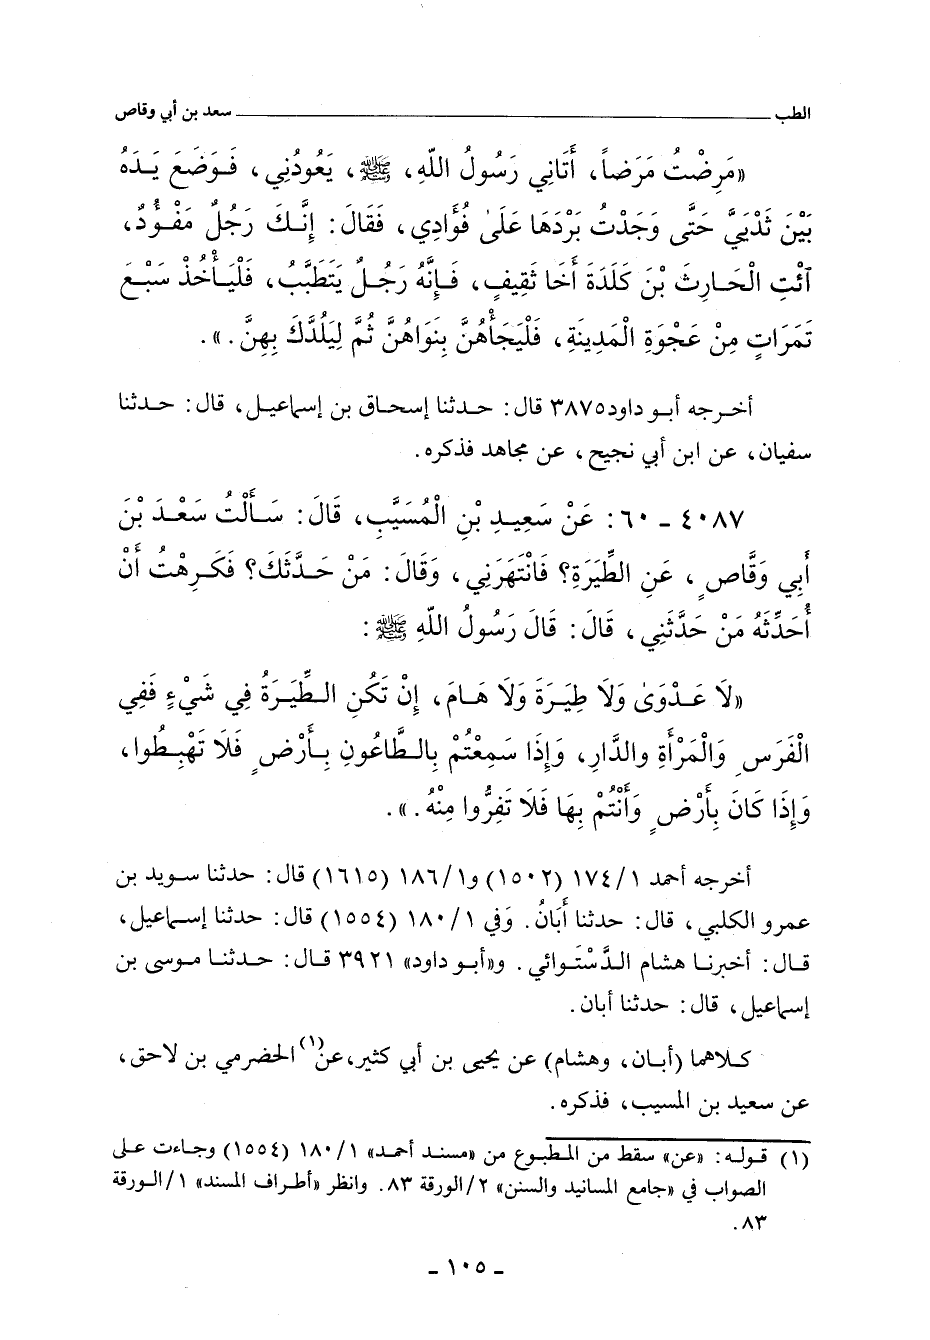 الطب ــــــــــــــــــــ سعد بن أبي وقاص
«مَرِضْتُ مَرَضاً، أَتَانِي رَسُولُ اللّٰهِ، ﷺ، يَعُودُنِي، فَوَضَعَ يَدَهُ
بَيْنَ ثَدْيَيَّ حَتَّى وَجَدْتُ بَرْدَهَا عَلَىٰ فُؤَادِي، فَقَالَ: إِنَّكَ رَجُلٌ مَفْؤُدٌ،
آئْتِ الْحَارِثَ بْنَ كَلَدَةَ أَخَا ثَقِيفٍ، فَإِنَّهُ رَجُلٌ يَتَطَبَّبُ، فَلْيَأْخُذْ سَبْعَ
تَمَرَاتٍ مِنْ عَجْوَةِ الْمَدِينَةِ، فَلْيَجَأْهُنَّ بِنَوَاهُنَّ ثُمَّ لِيَلُدَّكَ بِهِنَّ.».
أخرجه أبو داود ٣٨٧٥ قال: حدثنا إسحاق بن إسماعيل، قال: حدثنا
سفيان، عن ابن أبي نجيح، عن مجاهد فذكره.
٤٠٨٧ - ٦٠: عَنْ سَعِيدِ بْنِ الْمُسَيَّبِ، قَالَ: سَأَلْتُ سَعْدَ بْنَ
أَبِي وَقَّاصٍ، عَنِ الطِّيَرَةِ؟ فَانْتَهَرَنِي، وَقَالَ: مَنْ حَدَّثَكَ؟ فَكَرِهْتُ أَنْ
أُحَدِّثَهُ مَنْ حَدَّثَنِي، قَالَ: قَالَ رَسُولُ اللّٰهِ ﷺ:
«لَا عَدْوَىٰ وَلَا طِيَرَةَ وَلَا هَامَ، إِنْ تَكُنِ الطِّيَرَةُ فِي شَيْءٍ فَفِي
الْفَرَسِ وَالْمَرْأَةِ والدَّارِ، وَإِذَا سَمِعْتُمْ بِالطَّاعُونِ بِأَرْضٍ فَلَا تَهْبِطُوا،
وَإِذَا كَانَ بِأَرْضٍ وَأَنْتُمْ بِهَا فَلَا تَفِرُّوا مِنْهُ.».
أخرجه أحمد ١/١٧٤ (١٥٠٢) و١/١٨٦ (١٦١٥) قال: حدثنا سويد بن
عمرو الكلبي، قال: حدثنا أَبَانُ. وَفي ١/١٨٠ (١٥٥٤) قال: حدثنا إسماعيل،
قال: أخبرنا هشام الدَّسْتَوائي. و«أبو داود» ٣٩٢١ قال: حدثنا موسى بن
إسماعيل، قال: حدثنا أبان.
كلاهما (أبان، وهشام) عن يحيى بن أبي كثير، عن(١) الحضرمي بن لاحق،
عن سعيد بن المسيب، فذكره.
(١) قوله: «عن» سقط من المطبوع من «مسند أحمد» ١/١٨٠ (١٥٥٤) وجاءت على
الصواب في «جامع المسانيد والسنن» ٢/الورقة ٨٣. وانظر «أطراف المسند» ١/الورقة
٨٣.
- ١٠٥ -